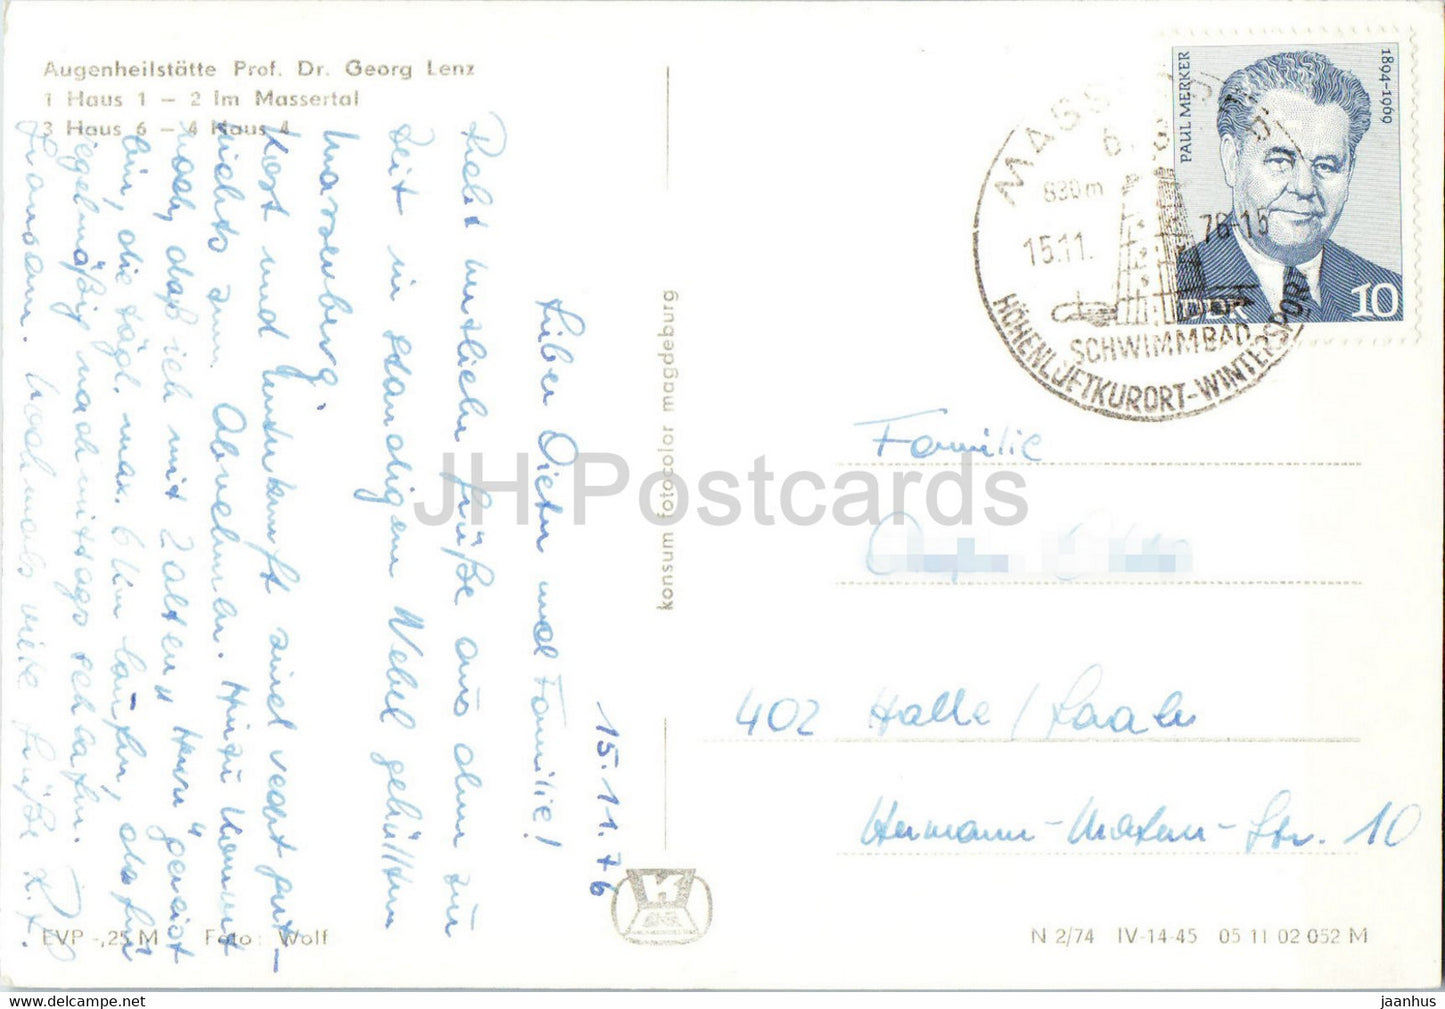 Augenheilstätte Prof. Dr. Georg Lenz
1 Haus 1 – 2 Im Massertal
3 Haus 6 – 4 Haus 4
15.11.76
Lieber Dieter und Familie!
Recht herzliche Grüße aus dem zur
Zeit in ständigem Nebel gehüllten
Masserberg.
Kost und Unterkunft sind recht gut –
nichts zum Abnehmen. Hinzu kommt
noch, daß ich mit 2 alten " Herrn " gereist
bin, die tägl. max. 6 km laufen, dafür
regelmäßig nachmittags schlafen.
Nochmals viele Grüße
EVP -,25 M Foto: Wolf
konsum fotocolor magdeburg
K
PAUL MERKER
1894-1969
DDR 10
830m
15.11. 76-15
SCHWIMMBAD
HÖHENLUFTKURORT-WINTERSPORT
Familie
402 Halle / Saale
Hermann-Matern-Str. 10
N 2/74 IV-14-45 05 11 02 052 M
JH Postcards
delcampe.net
jaanhus